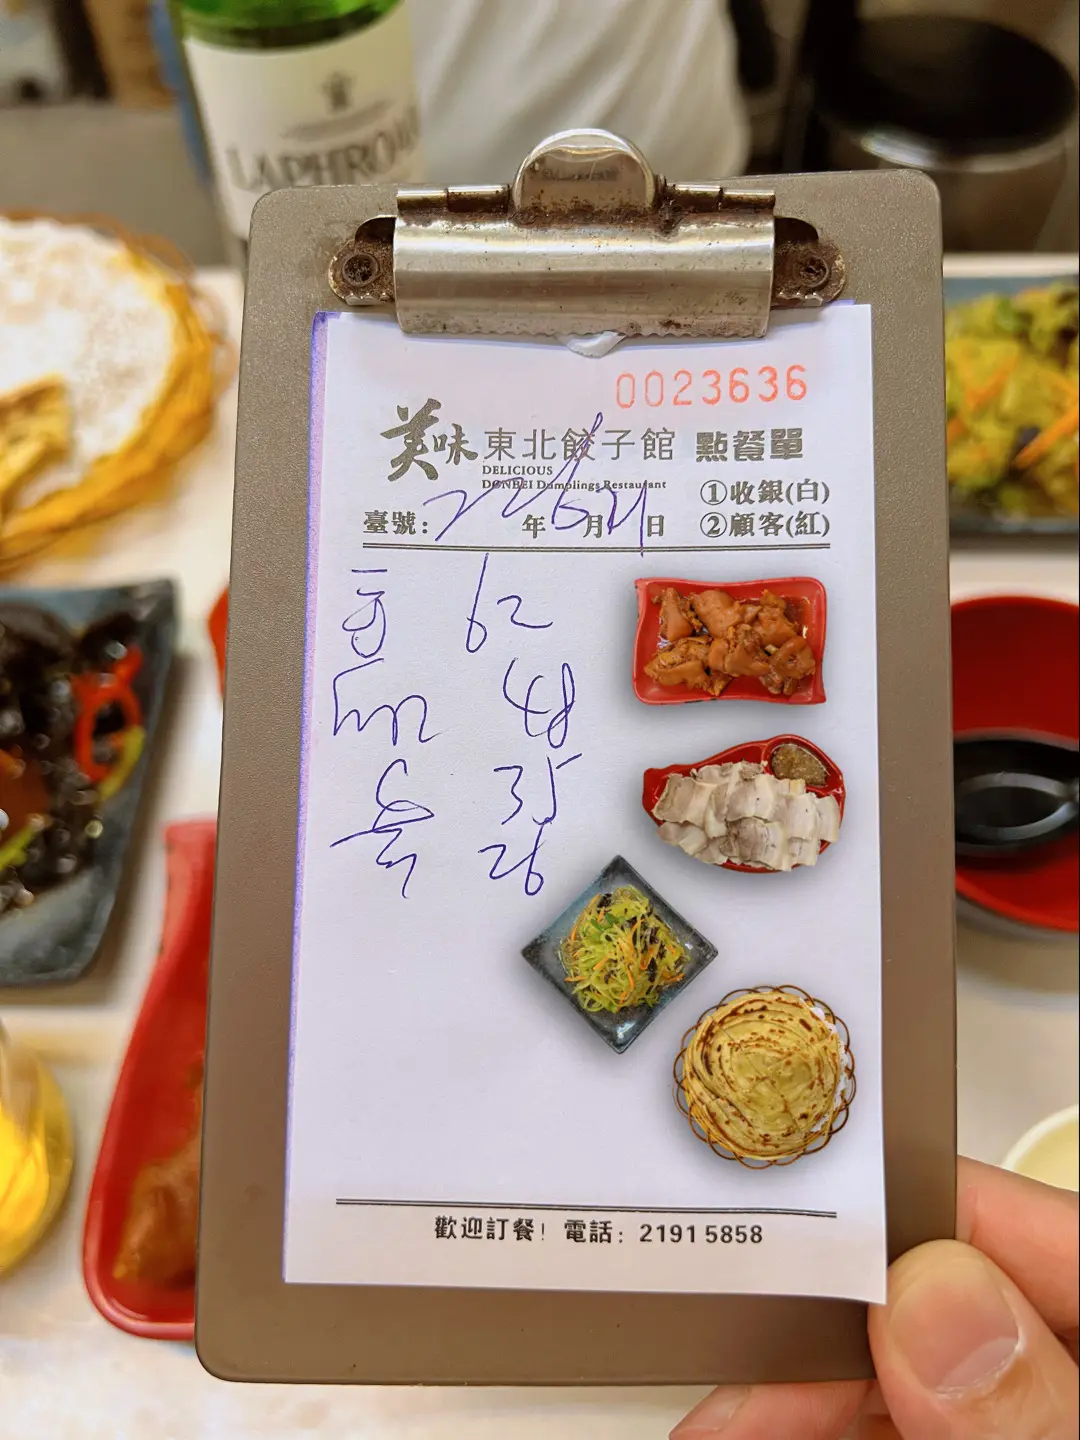 LAPHRO
0023636
美味 東北餃子館 點餐單
DELICIOUS
DONBEI Dumplings Restaurant
①收銀(白)
臺號: 年6月21日 ②顧客(紅)
62
48
35
26
歡迎訂餐! 電話: 21915858